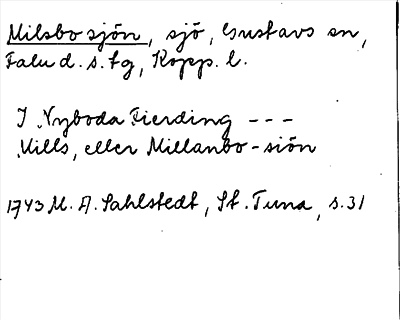 Milsbosjön, sjö, Gustavs sn,
Falu d. s. tg, Kopp. l.
I Nyboda Fierding ---
Mills, eller Millanbo-siön
1743 M. A. Sahlstedt, St. Tuna, s. 31